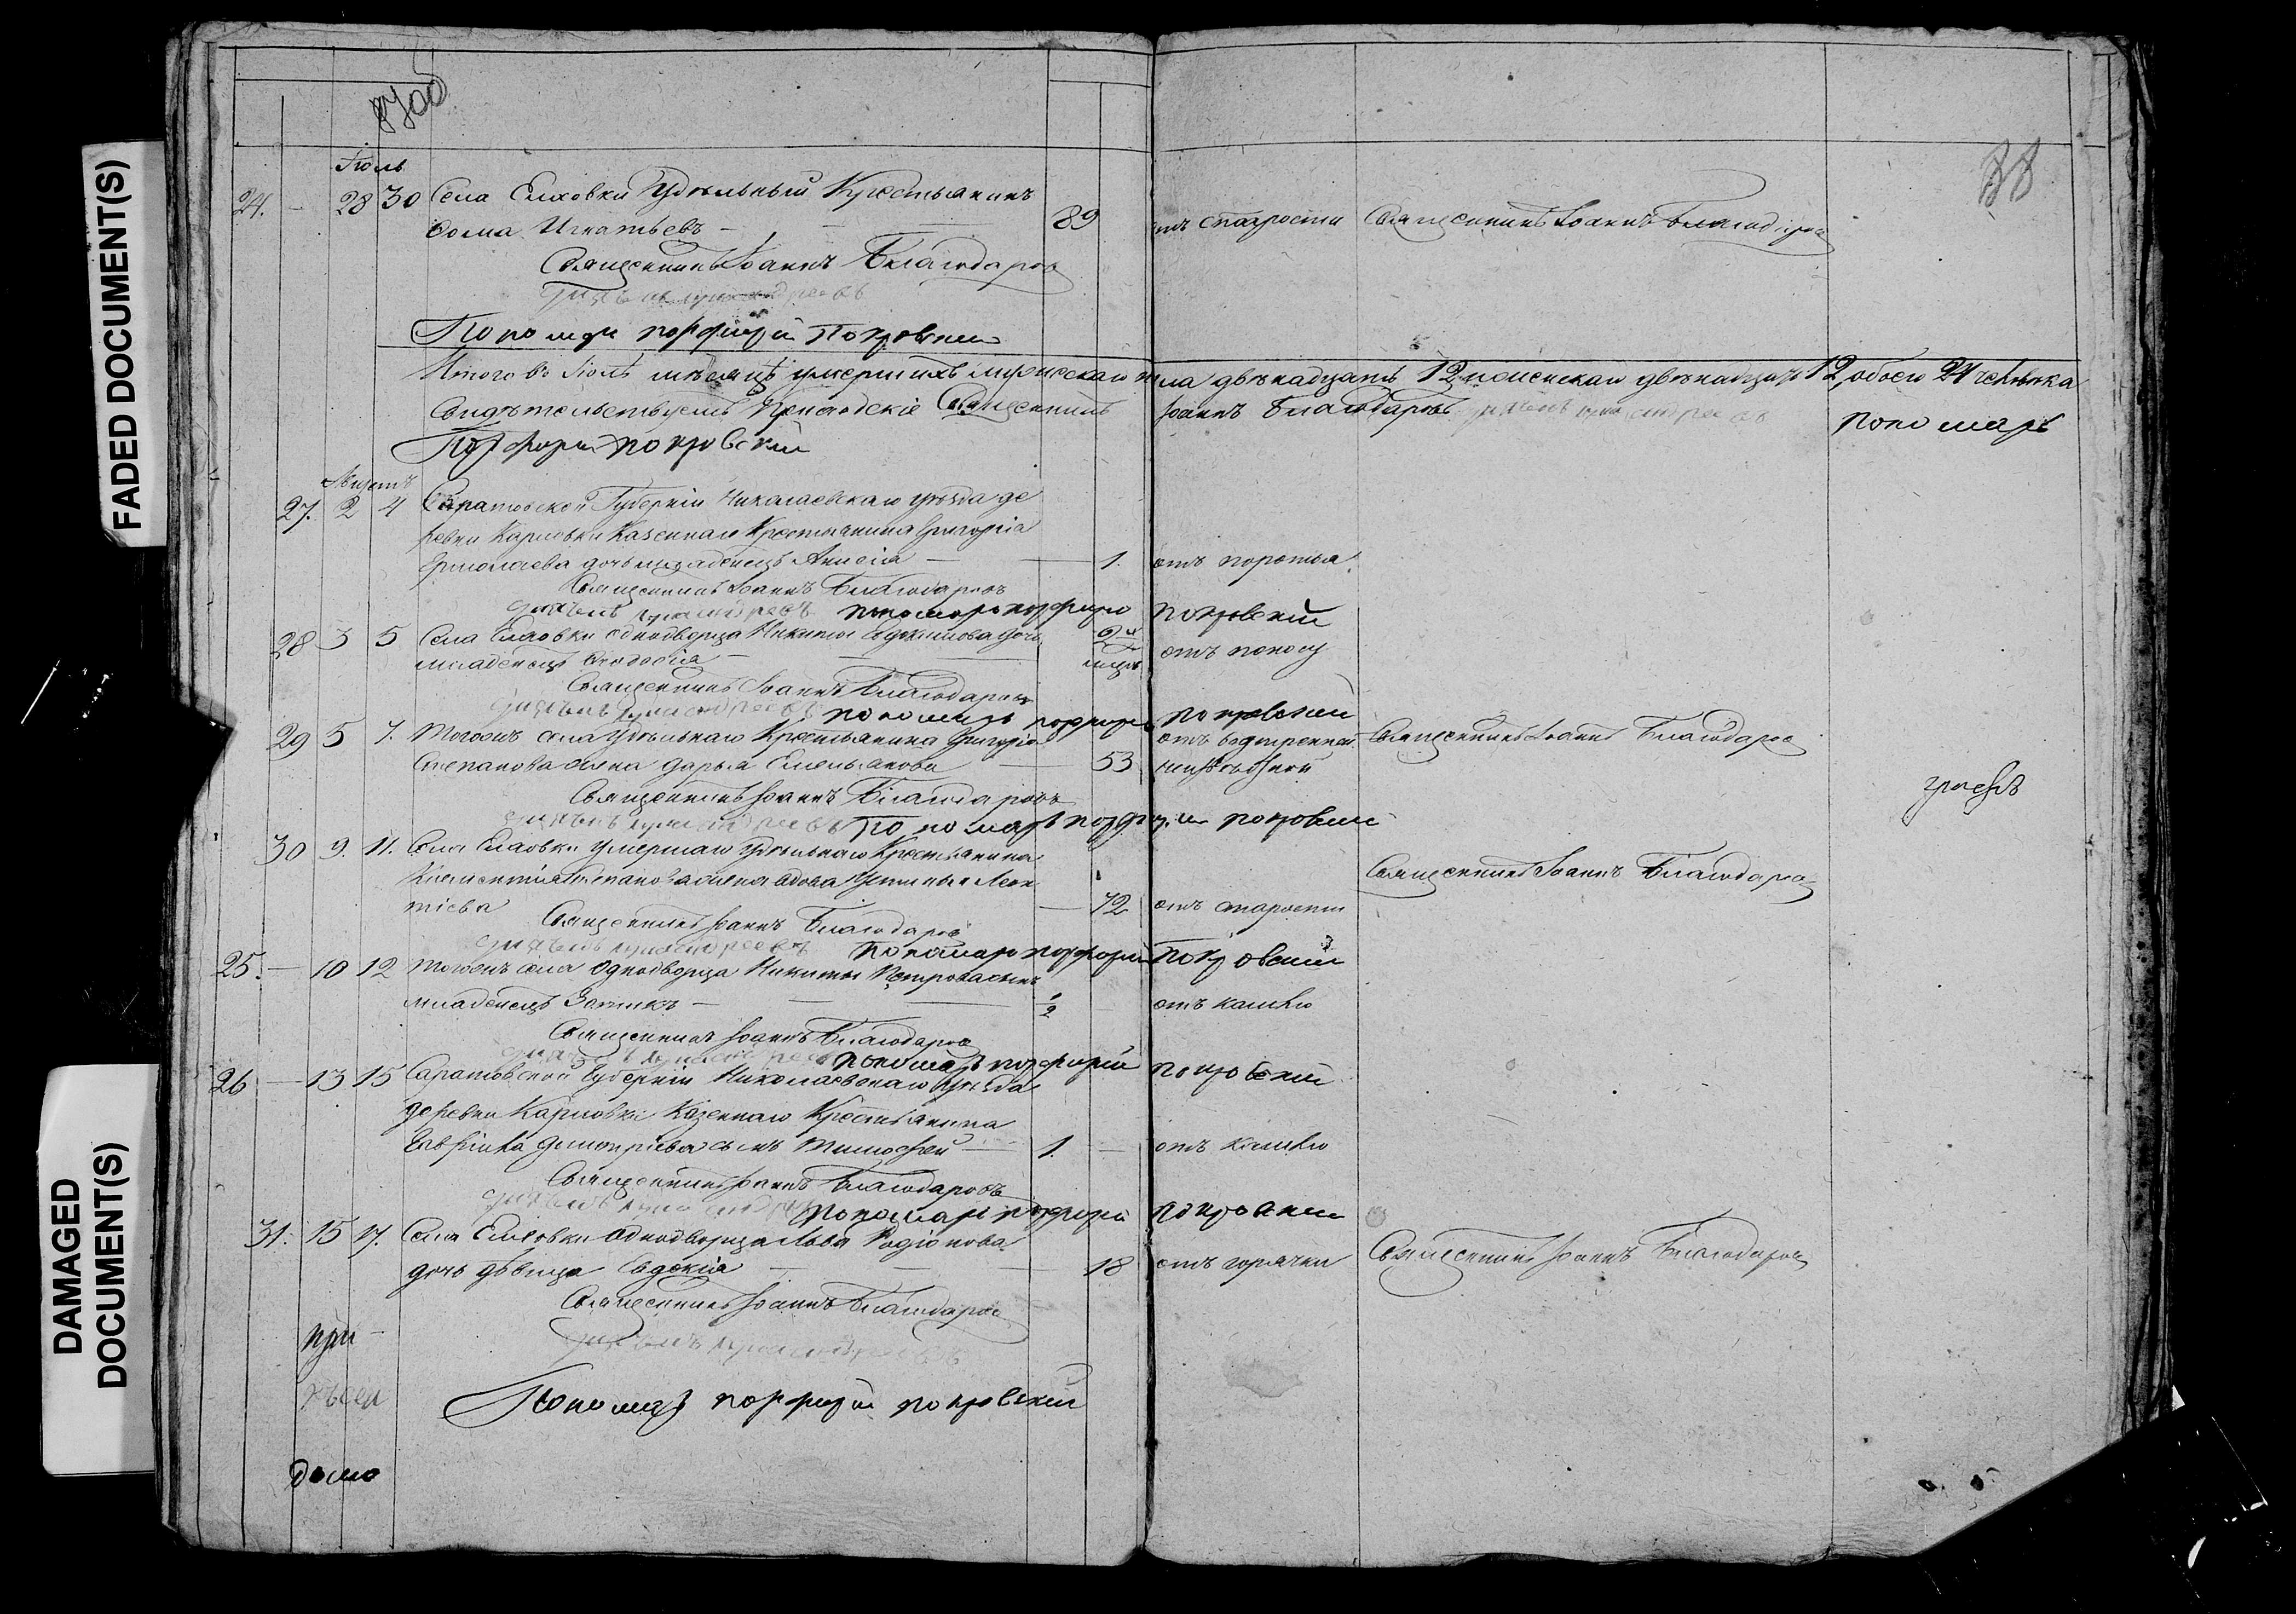 38
Іюль
24. – 28 30 Села Елховки Удѣльный Крестьянинъ
Ѳома Игнатьевъ – 89 отъ старости Священникъ Іоаннъ Благодаровъ
Священникъ Іоаннъ Благодаровъ
Пономарь Порфирій Покровскій
Итого въ Іюлѣ мѣсяцѣ умершихъ мужескаго пола двѣнадцать 12, женскаго двѣнадцать 12, обоего 24 человѣка
Свидѣтельствуемъ Приходскіе Священникъ Іоаннъ Благодаровъ Пономарь
Порфирій Покровскій
Августъ
27. 2 4 Саратовской Губерніи Николаевскаго уѣзда де
ревни Карловки Казеннаго Крестьянина Григорія
Ермолаева дочь младенецъ Анисія – 1. отъ
Священникъ Іоаннъ Благодаровъ
пономарь порфирій покровскій
28 3 5 Села Елховки однодворца Никиты дочь 2
младенецъ Ѳеодосія – отъ поносу
Священникъ Іоаннъ Благодаровъ
пономарь порфирій покровскій
29 5 7. Тогожъ села Удѣльнаго Крестьянина Григорія отъ внутренней Священникъ Іоаннъ Благодаровъ
Степанова жена Дарья Емельянова – 53
Священникъ Іоаннъ Благодаровъ
Пономарь порфирій покровскій
30 9. 11. Села Елховки умершаго Удѣльнаго Крестьянина
Климентія Степанова жена вдова Устинья Леон Священникъ Іоаннъ Благодаровъ
тіева – 72 отъ старости
Священникъ Іоаннъ Благодаровъ
Пономарь порфирій Покровскій
25. – 10 12 Тогожъ села Однодворца Никиты Петрова сынъ
младенецъ Зотикъ – ½ отъ кашлю
Священникъ Іоаннъ Благодаровъ
пономарь порфирій покровскій
26 – 13 15 Саратовской Губерніи Николаевскаго Уѣзда
деревни Карловки Казеннаго Крестьянина
Дмитріева сынъ Тимоѳей – 1. – отъ кашлю
Священникъ Іоаннъ Благодаровъ
пономарь порфирій покровскій
31. 15 17. Села Елховки Однодворца Льва Родіонова
дочь дѣвица Евдокія – 18 отъ горячки Священникъ Іоаннъ Благодаровъ
Священникъ Іоаннъ Благодаровъ
при
Пономарь порфирій покровскій
FADED DOCUMENT(S)
DAMAGED
DOCUMENT(S)